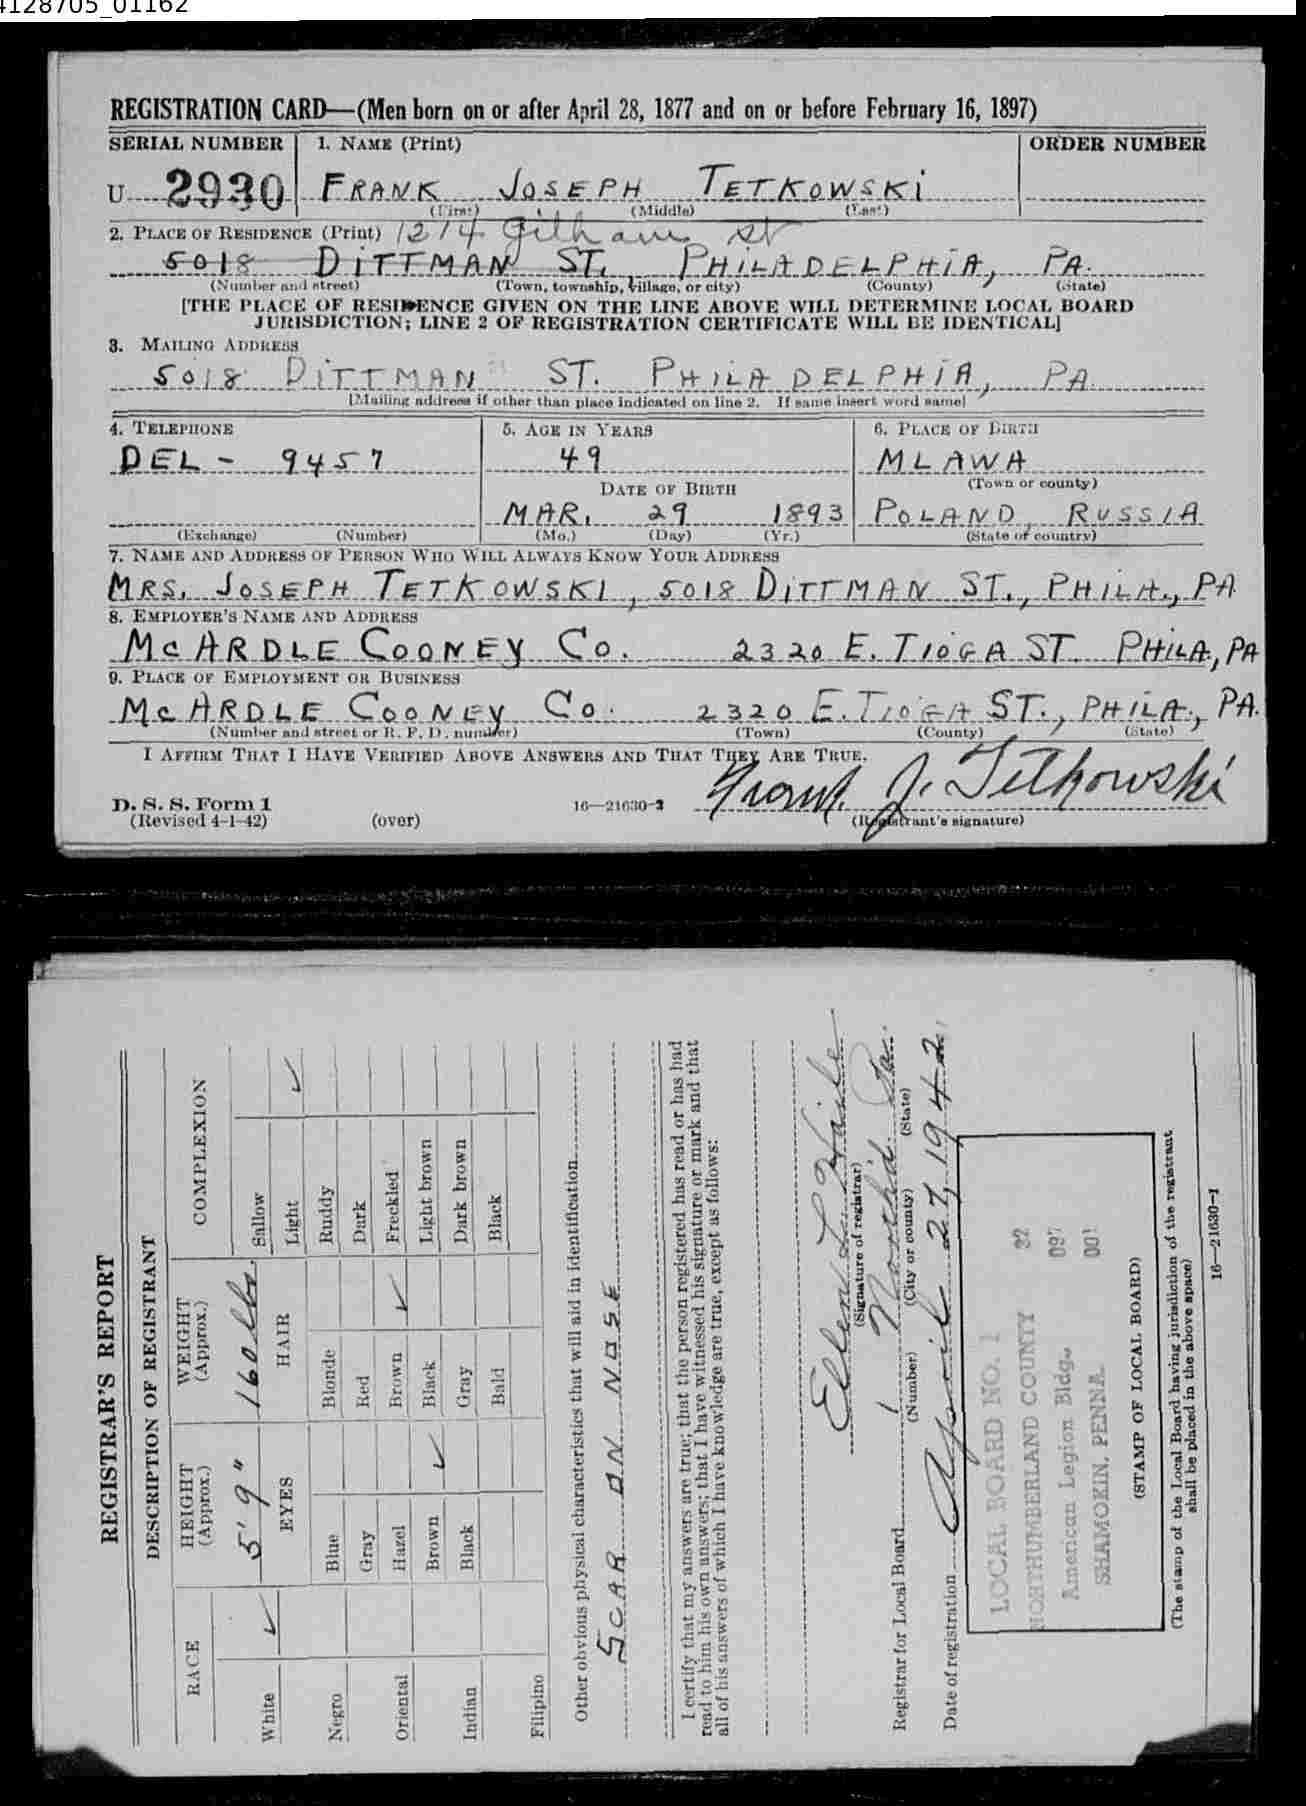 4128705_01162
REGISTRATION CARD—(Men born on or after April 28, 1877 and on or before February 16, 1897)
SERIAL NUMBER 1. NAME (Print) ORDER NUMBER
U 2930 FRANK JOSEPH TETKOWSKI
(First) (Middle) (Last)
2. PLACE OF RESIDENCE (Print) 1214 Gilham St
5018 DITTMAN ST., PHILADELPHIA, PA.
(Number and street) (Town, township, village, or city) (County) (State)
[THE PLACE OF RESIDENCE GIVEN ON THE LINE ABOVE WILL DETERMINE LOCAL BOARD
JURISDICTION; LINE 2 OF REGISTRATION CERTIFICATE WILL BE IDENTICAL]
3. MAILING ADDRESS
5018 DITTMAN ST. PHILADELPHIA, PA.
[Mailing address if other than place indicated on line 2. If same insert word same]
4. TELEPHONE 5. AGE IN YEARS 6. PLACE OF BIRTH
DEL - 9457 49 MLAWA
DATE OF BIRTH (Town or county)
MAR. 29 1893 POLAND, RUSSIA
(Exchange) (Number) (Mo.) (Day) (Yr.) (State or country)
7. NAME AND ADDRESS OF PERSON WHO WILL ALWAYS KNOW YOUR ADDRESS
MRS. JOSEPH TETKOWSKI, 5018 DITTMAN ST., PHILA., PA
8. EMPLOYER'S NAME AND ADDRESS
MCARDLE COONEY CO. 2320 E. TIOGA ST. PHILA., PA
9. PLACE OF EMPLOYMENT OR BUSINESS
MCARDLE COONEY CO. 2320 E. TIOGA ST., PHILA., PA.
(Number and street or R. F. D. number) (Town) (County) (State)
I AFFIRM THAT I HAVE VERIFIED ABOVE ANSWERS AND THAT THEY ARE TRUE.
Frank J. Tetkowski
D. S. S. Form 1
(Revised 4-1-42) (over) 16—21630-2 (Registrant's signature)
REGISTRAR'S REPORT
DESCRIPTION OF REGISTRANT
RACE HEIGHT (Approx.) WEIGHT (Approx.) COMPLEXION
5' 9" 160 lbs.
White ✓ EYES HAIR Sallow
Light ✓
Negro Blue Blonde Ruddy
Gray Red Dark
Oriental Hazel Brown ✓ Freckled
Brown ✓ Black Light brown
Indian Black Gray Dark brown
Bald Black
Filipino
Other obvious physical characteristics that will aid in identification
SCAR ON NOSE
I certify that my answers are true; that the person registered has read or has had
read to him his own answers; that I have witnessed his signature or mark and that
all of his answers of which I have knowledge are true, except as follows:
Ellen L. Haile
(Signature of registrar)
Registrar for Local Board 1 Northd. Pa.
(Number) (City or county) (State)
Date of registration April 27, 1942
LOCAL BOARD NO. 1
NORTHUMBERLAND COUNTY 32
American Legion Bldg. 097
SHAMOKIN, PENNA. 001
(STAMP OF LOCAL BOARD)
(The stamp of the Local Board having jurisdiction of the registrant
shall be placed in the above space)
16—21630-1